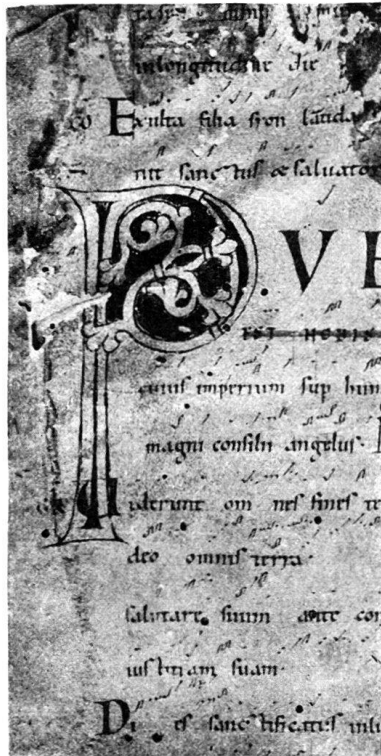 inlongitudine die
co Exulta filia syon lauda
nit sanc tus & saluator
PVE
EST HOMIN
cuius imperium sup hum
magni consilii angelus
GR Viderunt om nes fines te
deo omnis terra
salutare suum ante con
iustitiam suam
Di es sanc tificatus inlu